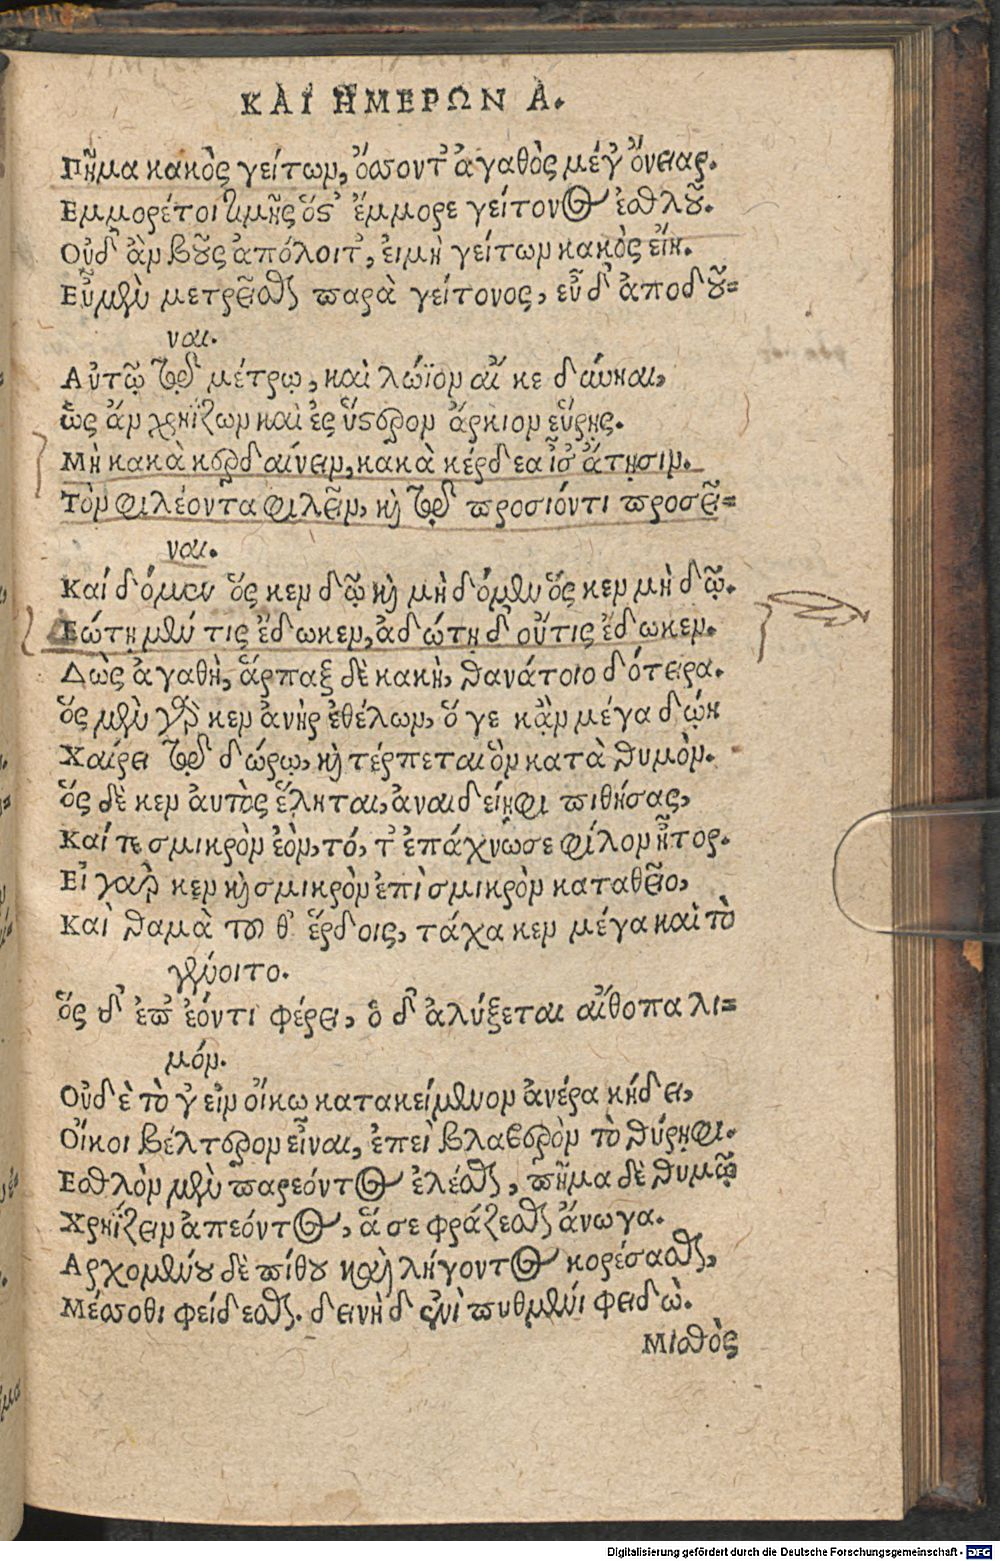 ΚΑΙ ΗΜΕΡΩΝ Α.
Πῆμα κακὸς γείτων, ὅσσοντ᾽ ἀγαθὸς μέγ᾽ ὄνειαρ.
Εμμορέτοι τιμῆς ὅστ᾽ ἔμμορε γείτονος ἐσθλοῦ.
Οὐδ᾽ ἂν βοῦς ἀπόλοιτ᾽, ἐιμὴ γείτων κακὸς εἴη.
Εὖ μὲν μετρεῖσθαι παρὰ γείτονος, εὖ δ᾽ ἀποδοῦ=
ναι.
Αὐτῷ τῷ μέτρῳ, καὶ λώϊον αἴ κε δύνηαι,
ὡς ἂν χρηΐζων καὶ ἐς ὕστερον ἄρκιον εὕρης.
Μὴ κακὰ κερδαίνειν, κακὰ κέρδεα ἶσ᾽ ἄτῃσιν.
Τὸν φιλέοντα φιλεῖν, καὶ τῷ προσιόντι προσεῖ=
ναι.
Καί δόμεν ὅς κεν δῷ καὶ μὴ δόμεν ὅς κεν μὴ δῷ.
Δώτῃ μέν τις ἔδωκεν, ἀδώτῃ δ᾽ οὔτις ἔδωκεν.
Δὼς ἀγαθὴ, ἅρπαξ δὲ κακὴ, θανάτοιο δότειρα.
ὅς μὲν γάρ κεν ἀνὴρ ἐθέλων, ὅ γε κᾂν μέγα δῴη
Χαίρει τῷ δώρῳ, καὶ τέρπεται ὃν κατὰ θυμὸν.
ὅς δὲ κεν ἀυτὸς ἕληται, ἀναιδείῃφι πιθήσας,
Καί τε σμικρὸν ἐὸν, τό, τ᾽ ἐπάχνωσε φίλον ἦτορ.
Εἰ γαρ κεν καὶ σμικρὸν ἐπὶ σμικρὸν καταθεῖο,
Καὶ θαμὰ τοῦθ᾽ ἕρδοις, τάχα κεν μέγα καὶ τὸ
γένοιτο.
ὅς δ᾽ ἐπ᾽ ἐόντι φέρει, ὁ δ᾽ ἀλύξεται αἴθοπα λι=
μόν.
Οὐδὲ τὸ γ᾽ εἰν οἴκω κατακείμενον ἀνέρα κήδει,
Οἴκοι βέλτερον εἶναι, ἐπεὶ βλαβερὸν τὸ θύρηφι.
Εσθλὸν μὲν παρεόντος ἑλέσθαι, πῆμα δὲ θυμῷ
Χρηΐζειν ἀπεόντος, ἅ σε φράζεσθαι ἄνωγα.
Αρχομένου δὲ πίθου καὶ λήγοντος κορέσασθαι,
Μέσσοθι φείδεσθαι. δεινὴ δ᾽ ἐνὶ πυθμένι φειδὼ.
Μισθὸς
Digitalisierung gefördert durch die Deutsche Forschungsgemeinschaft - DFG